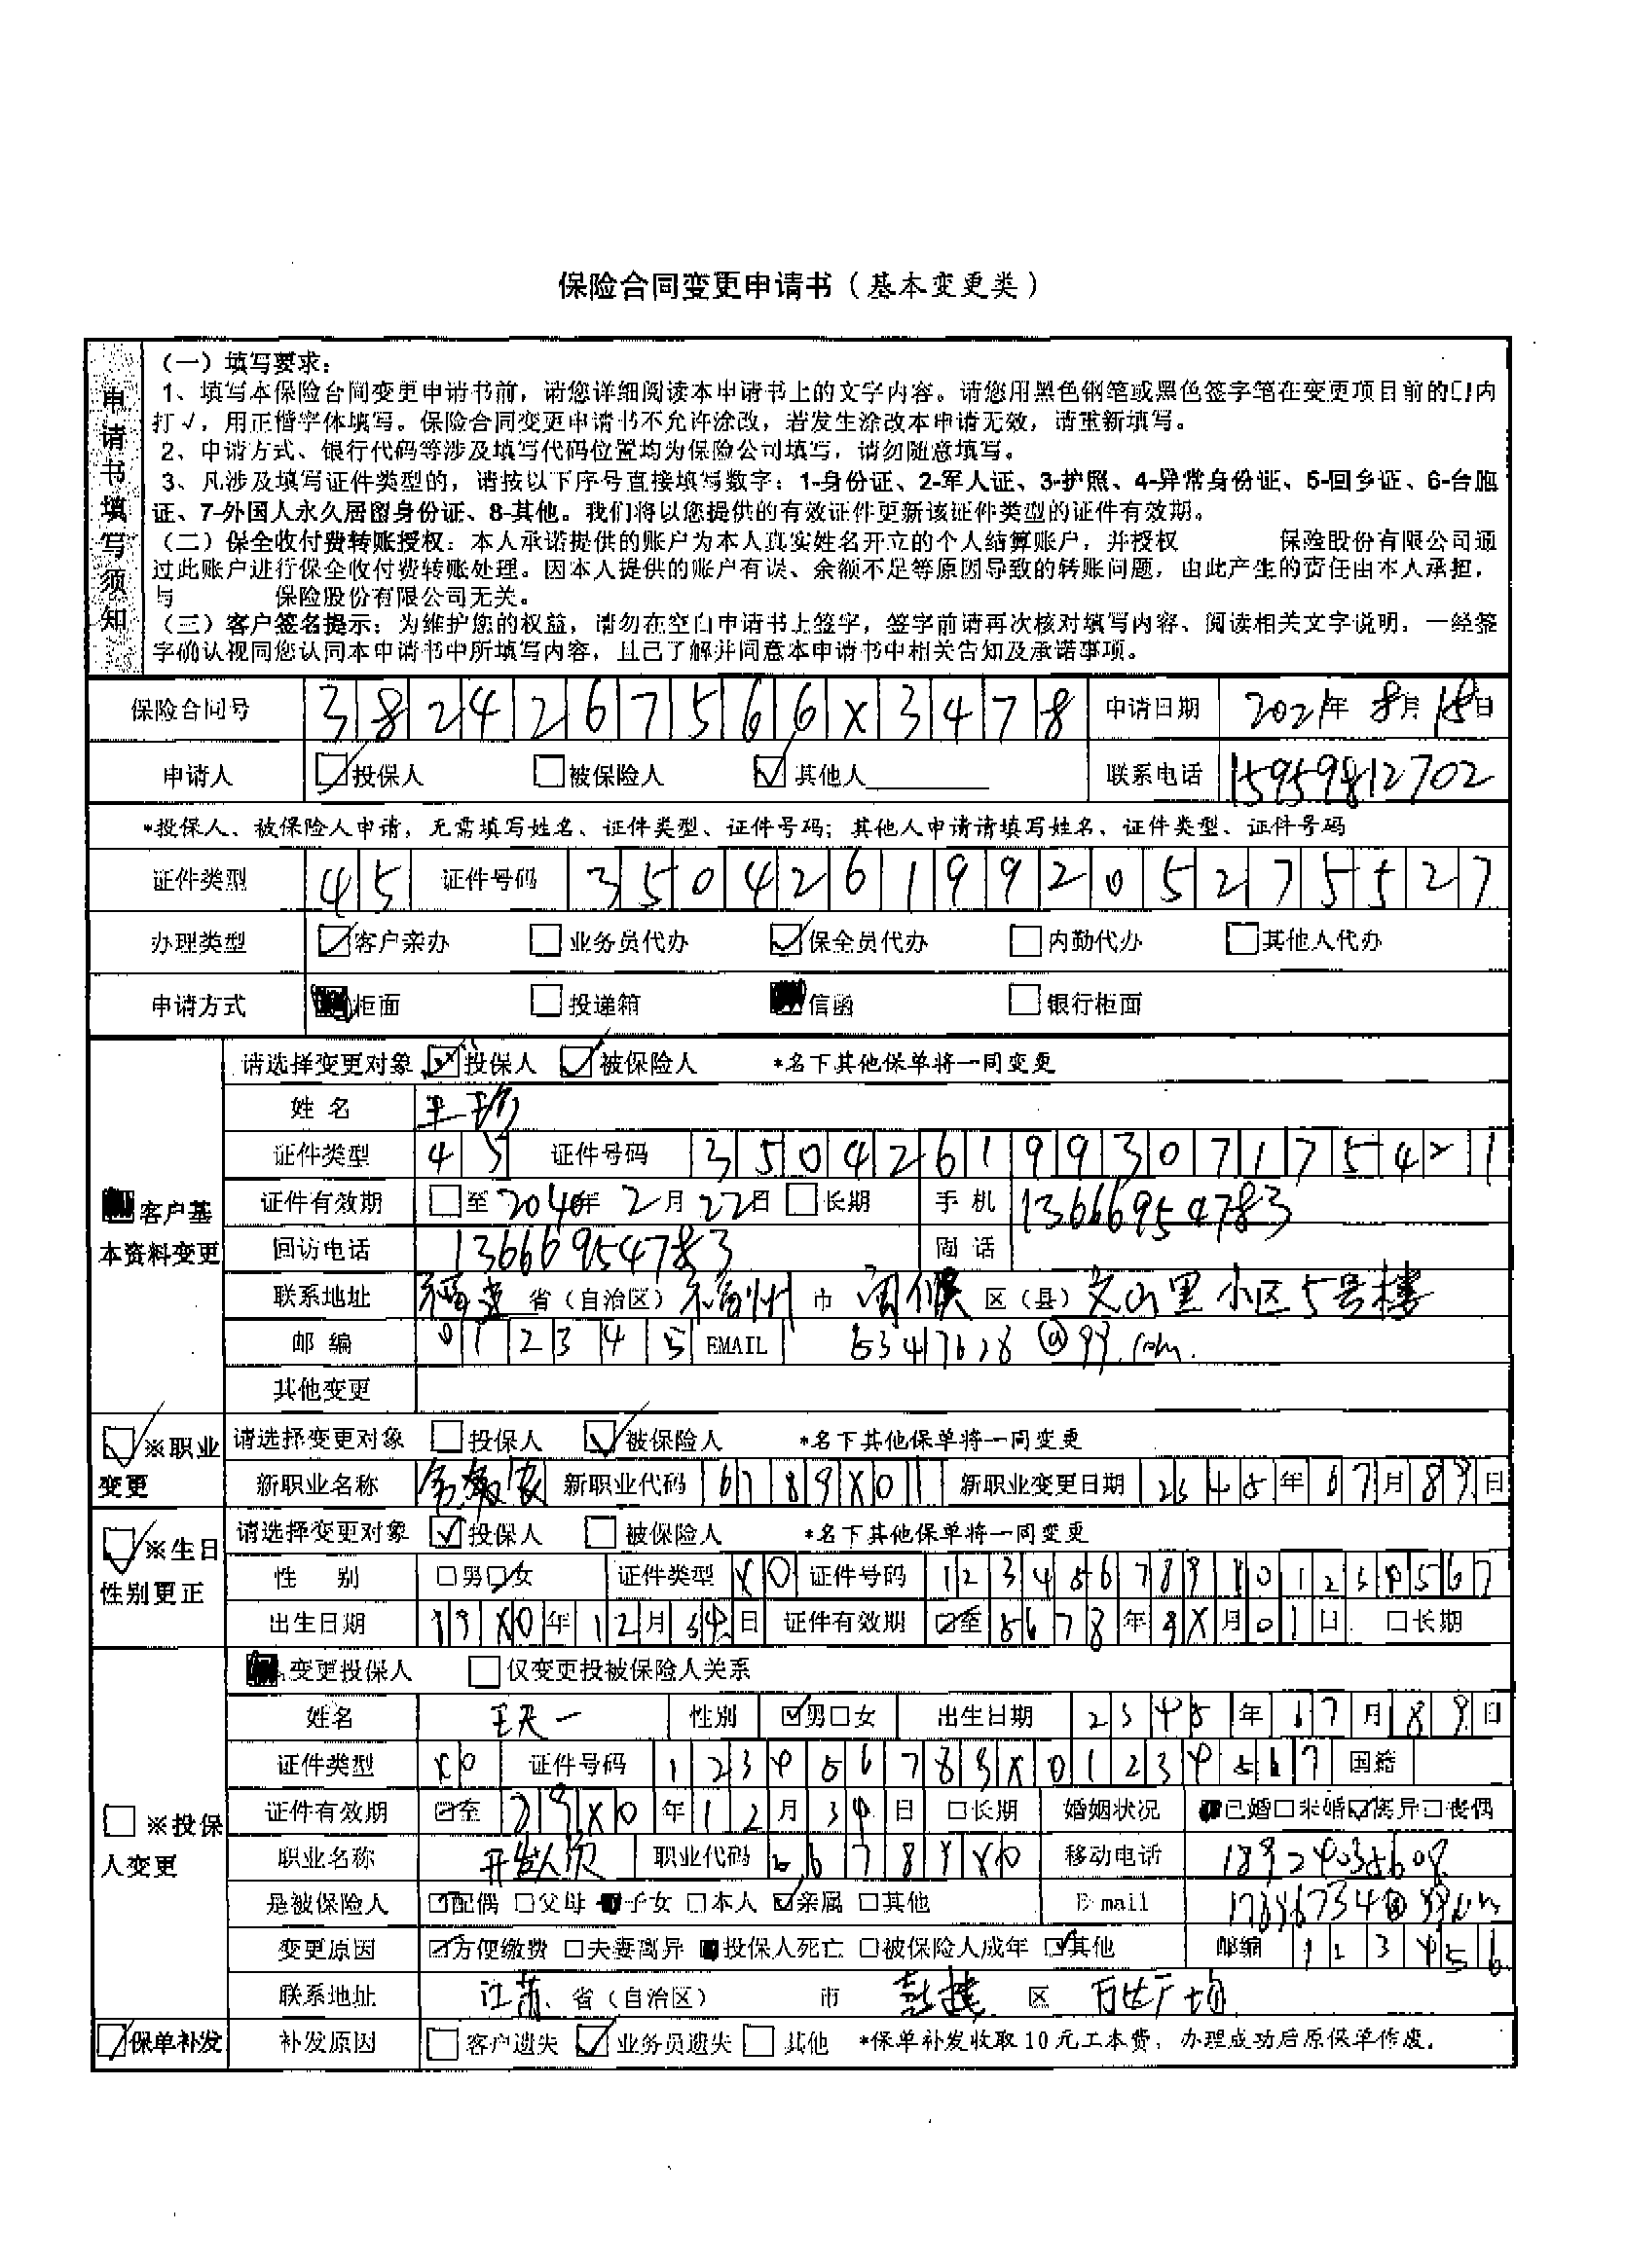 保险合同变更申请书（基本变更类）
申请书填写须知
（一）填写要求：
1、填写本保险合同变更申请书前，请您详细阅读本申请书上的文字内容。请您用黑色钢笔或黑色签字笔在变更项目前的口内
打√，用正楷字体填写。保险合同变更申请书不允许涂改，若发生涂改本申请无效，请重新填写。
2、申请方式、银行代码等涉及填写代码位置均为保险公司填写，请勿随意填写。
3、凡涉及填写证件类型的，请按以下序号直接填写数字：1-身份证、2-军人证、3-护照、4-异常身份证、5-回乡证、6-台胞
证、7-外国人永久居留身份证、8-其他。我们将以您提供的有效证件更新该证件类型的证件有效期。
（二）保全收付费转账授权：本人承诺提供的账户为本人真实姓名开立的个人结算账户，并授权 保险股份有限公司通
过此账户进行保全收付费转账处理。因本人提供的账户有误、余额不足等原因导致的转账问题，由此产生的责任由本人承担，
与 保险股份有限公司无关。
（三）客户签名提示：为维护您的权益，请勿在空白申请书上签字，签字前请再次核对填写内容、阅读相关文字说明，一经签
字确认视同您认同本申请书中所填写内容，且已了解并同意本申请书中相关告知及承诺事项。
保险合同号 3824267566X3478 申请日期 2021年8月18日
申请人 投保人 被保险人 其他人 联系电话 15959812702
*投保人、被保险人申请，无需填写姓名、证件类型、证件号码；其他人申请请填写姓名、证件类型、证件号码
证件类型 45 证件号码 350426199205275527
办理类型 客户亲办 业务员代办 保全员代办 内勤代办 其他人代办
申请方式 柜面 投递箱 信函 银行柜面
客户基本资料变更
请选择变更对象 投保人 被保险人 *名下其他保单将一同变更
姓名
证件类型 45 证件号码 350426199307175421
证件有效期 至2040年2月22日 长期 手机 13666954783
回访电话 13666954783 固话
联系地址 福建省（自治区）福州市闽侯区（县）文山里小区5号楼
邮编 012345 EMAIL @qq.com.
其他变更
※职业变更
请选择变更对象 投保人 被保险人 *名下其他保单将一同变更
新职业名称 新职业代码 6789X01 新职业变更日期 2345年67月89日
※生日性别更正
请选择变更对象 投保人 被保险人 *名下其他保单将一同变更
性别 男 女 证件类型 X0 证件号码
出生日期 19X0年12月34日 证件有效期 至5678年9X月01日 长期
※投保人变更
变更投保人 仅变更投被保险人关系
姓名 王天一 性别 男 女 出生日期 2345年67月89日
证件类型 X0 证件号码 123456789X01234567 国籍
证件有效期 至 年12月34日 长期 婚姻状况 已婚 未婚 离异 丧偶
职业名称 职业代码 移动电话
是被保险人 配偶 父母 子女 本人 亲属 其他 E-mail
变更原因 方便缴费 夫妻离异 投保人死亡 被保险人成年 其他 邮编 123456
联系地址 江苏省（自治区） 市 区
保单补发 补发原因 客户遗失 业务员遗失 其他 *保单补发收取10元工本费，办理成功后原保单作废。